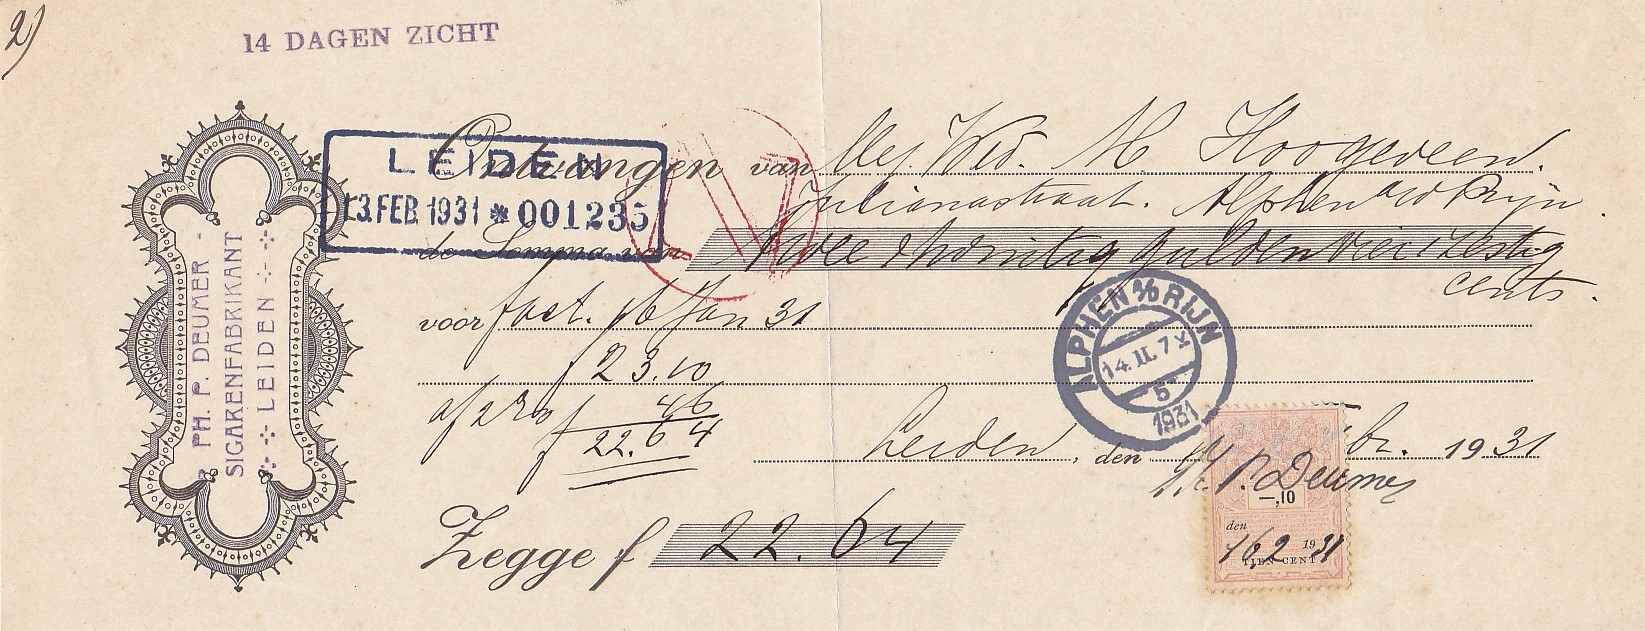 2)
14 DAGEN ZICHT
PH. P. DEUMER -
SIGARENFABRIKANT
LEIDEN
LEIDEN
13. FEB. 1931 * 001235
Ontvangen van Mej. Wed. M. Hoogeveen.
Julianastraat. Alphen a/d Rijn.
de Somma van twee & twintig gulden vier & zestig
cents.
voor fact. 16 Jan 31
f 23.10
af 2% f 46
f 22.64
ALPHEN a/d RIJN
14.II.7
5
1931
Leiden, den Febr. 1931
Ph. P. Deumer
-,10
den
16 2 1931
TIEN CENT
Zegge f 22.64